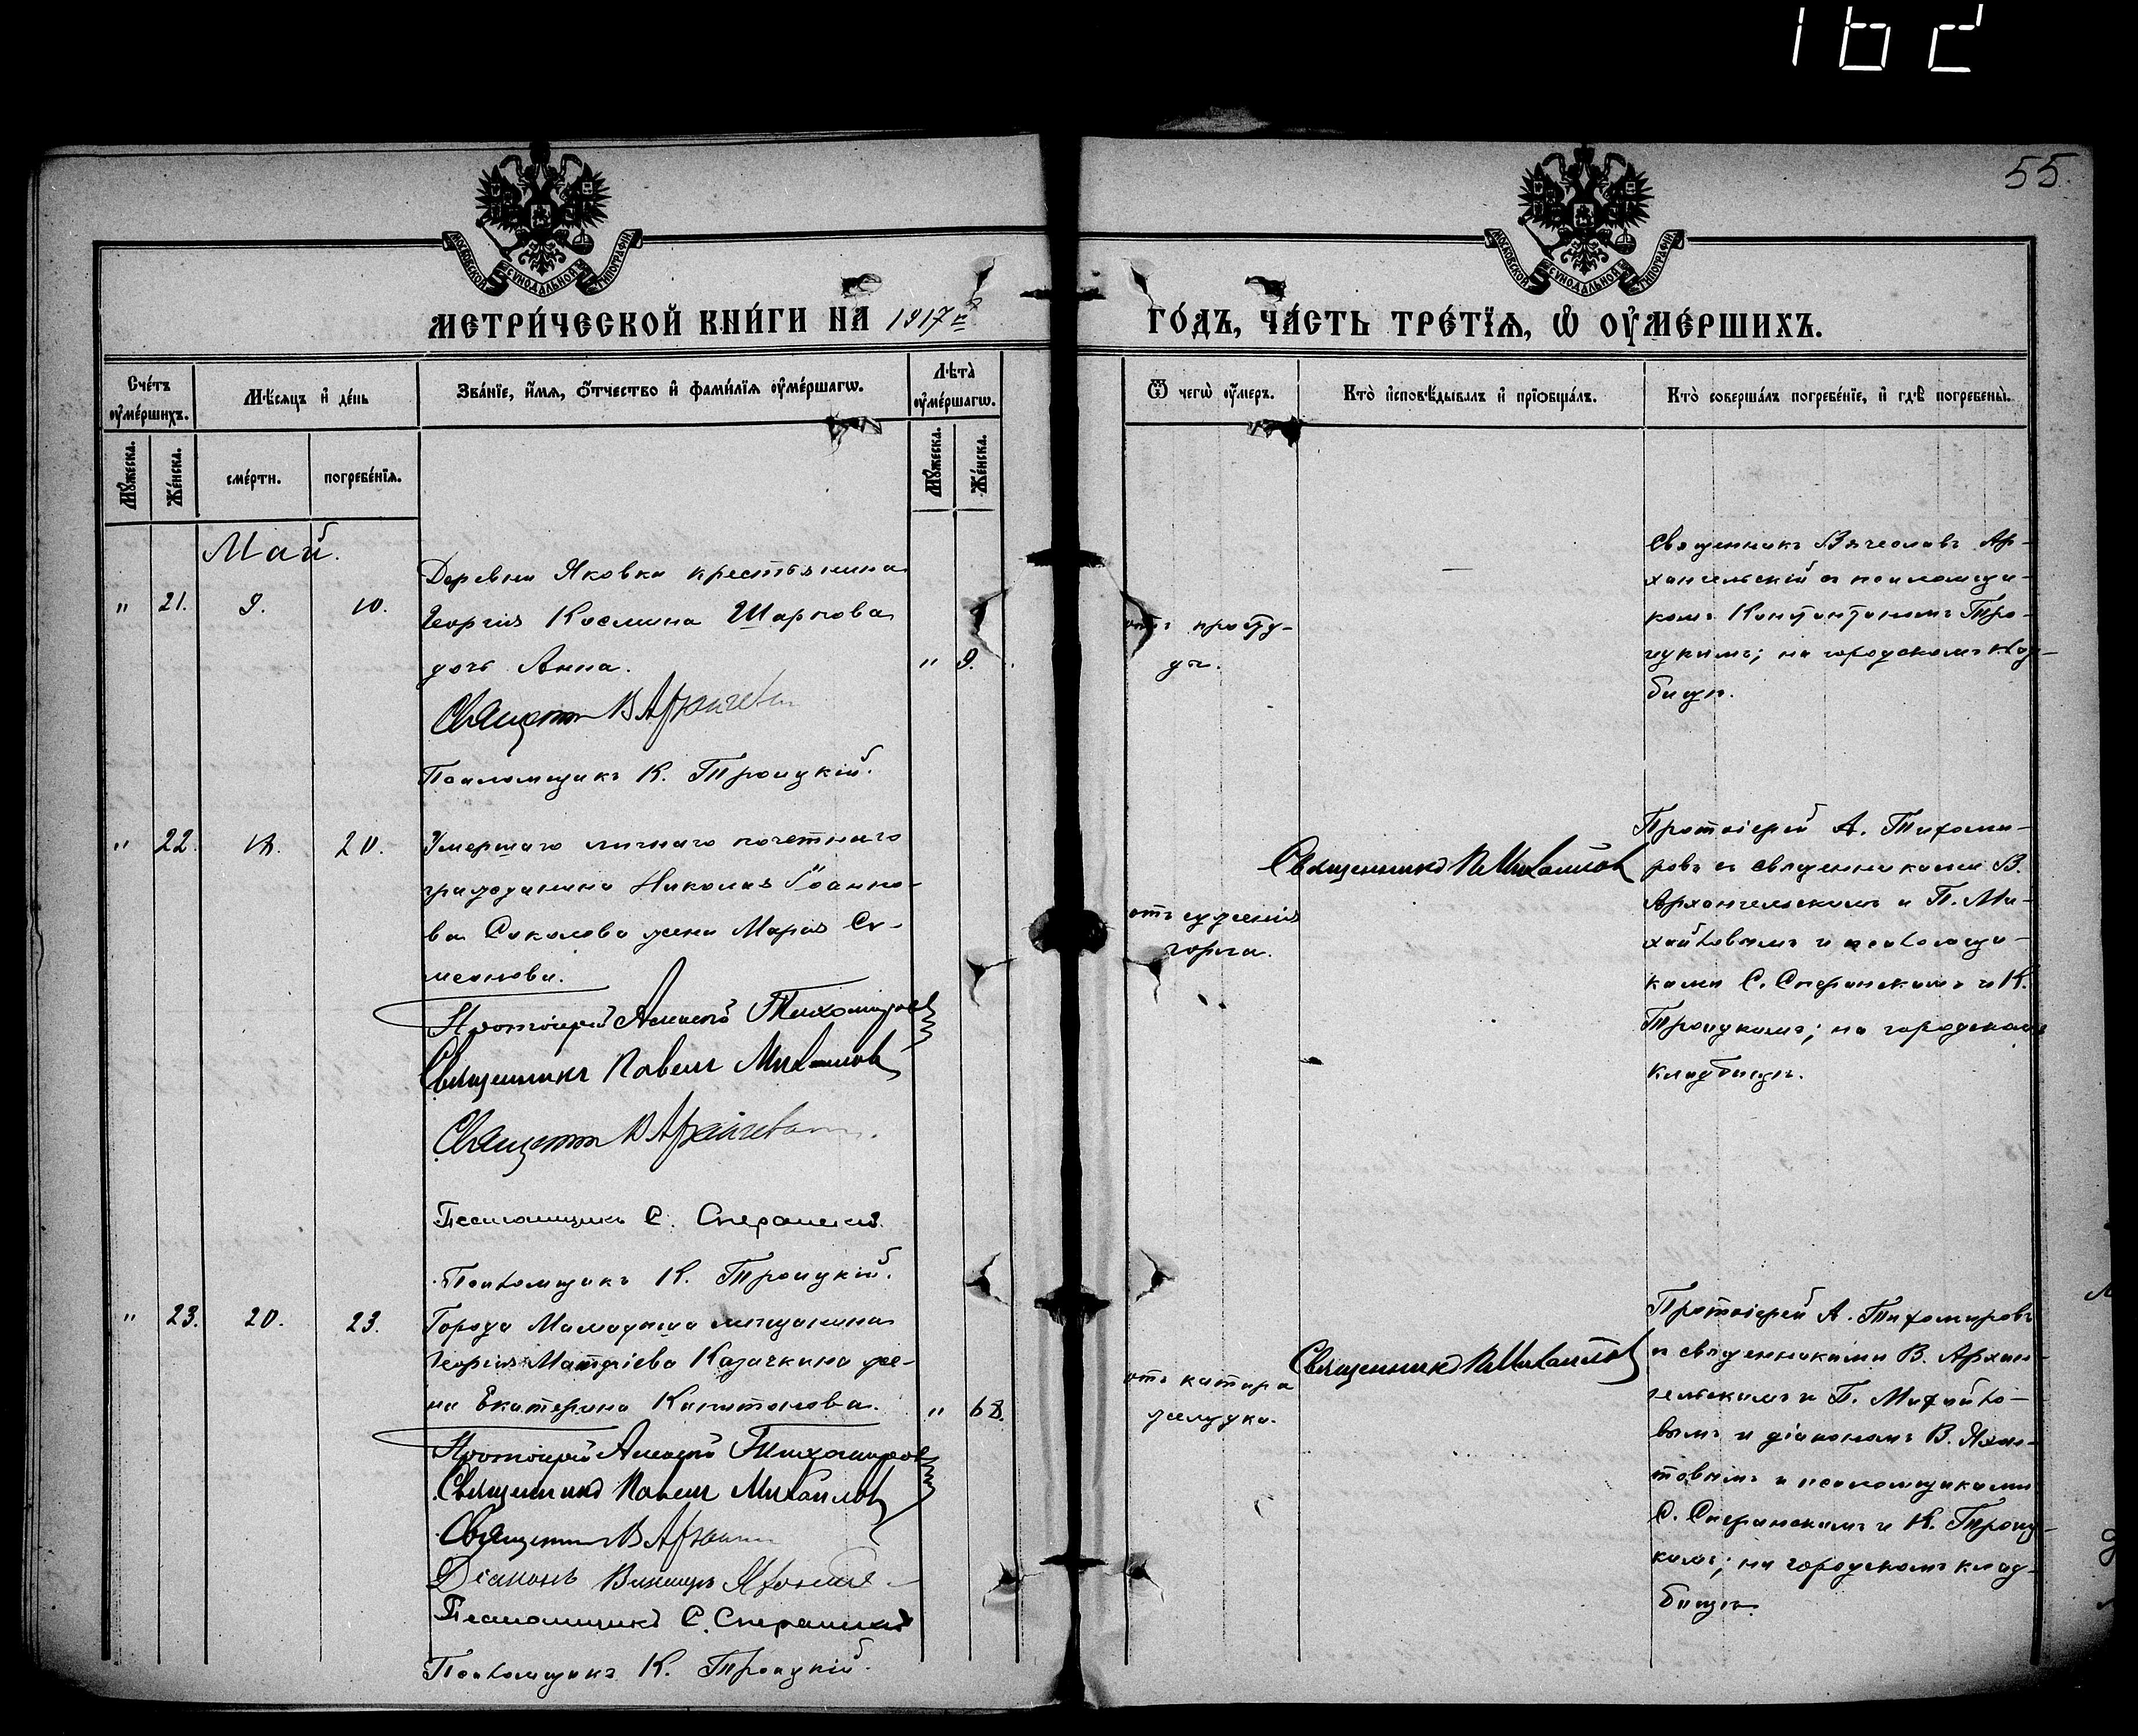 162
55.
МОСКОВСКОЙ СѴНОДАЛЬНОЙ ТИПОГРАФІИ
МОСКОВСКОЙ СѴНОДАЛЬНОЙ ТИПОГРАФІИ
МЕТРИ́ЧЕСКОЙ КНИ́ГИ НА 1917й
ГО́ДЪ, ЧА́СТЬ ТРЕ́ТЇѦ, Ѡ҆ ОУ҆МЕ́РШИХЪ.
Сче́тъ оу҆ме́ршихъ.
Мѣ́сѧцъ и҆ де́нь
Зва́нїе, и҆́мѧ, ѻ҆́тчество и҆ фами́лїѧ оу҆ме́ршагѡ.
Лѣ́та оу҆ме́ршагѡ.
Ѿ чегѡ̀ оу҆́меръ.
Кто̀ и҆сповѣ́дывалъ и҆ прїѡбща́лъ.
Кто̀ соверша́лъ погребе́нїе, и҆ гдѣ̀ погребены̀.
Мꙋ́жеска.
Же́нска.
сме́рти.
погребе́нїѧ.
Мꙋ́жеска.
Же́нска.
Май.
" 21. 9. 10.
Деревни Яковка крестьянина
Георгія Космина Шарпова
дочь Анна. " 9.
Священник В Архангел
Псаломщикъ К. Троицкій.
отъ просту-
ды.
—
Священникъ Вячеславъ Ар-
хангельскій съ псаломщи-
комъ Константиномъ Тро-
ицкимъ; на городскомъ клад-
бищѣ.
" 22. 18. 20.
Умершаго личнаго почетнаго
гражданина Николая Іоанно-
ва Соколова жена Марія Си-
меонова.
Протоіерей Алексѣй Тихомировъ
Священникъ Павелъ Михайловъ
Священник В Архангел
Псаломщикъ С. Сперанскій.
Псаломщикъ К. Троицкій.
отъ суженія
горла.
Священникъ П. Михайловъ
Протоіерей А. Тихоми-
ровъ съ священниками В.
Архангельскимъ и П. Ми-
хайловымъ и псаломщи-
ками С. Сперанскимъ и К.
Троицкимъ; на городскомъ
кладбищѣ.
" 23. 20. 23.
Города Мамадыша мѣщанина
Георгія Матѳіева Казачкина же-
на Екатерина Капитонова. " 68.
Протоіерей Алексѣй Тихомировъ
Священникъ Павелъ Михайловъ
Священник В Архан
Діаконъ
Псаломщикъ С. Сперанскій
Псаломщикъ К. Троицкій.
отъ катара
желудка.
Священникъ П. Михайловъ
Протоіерей А. Тихомировъ
съ священниками В. Архан-
гельскимъ и П. Михайло-
вымъ и діакономъ В. Яхон-
товымъ и псаломщиками
С. Сперанскимъ и К. Троиц-
кимъ; на городскомъ клад-
бищѣ.